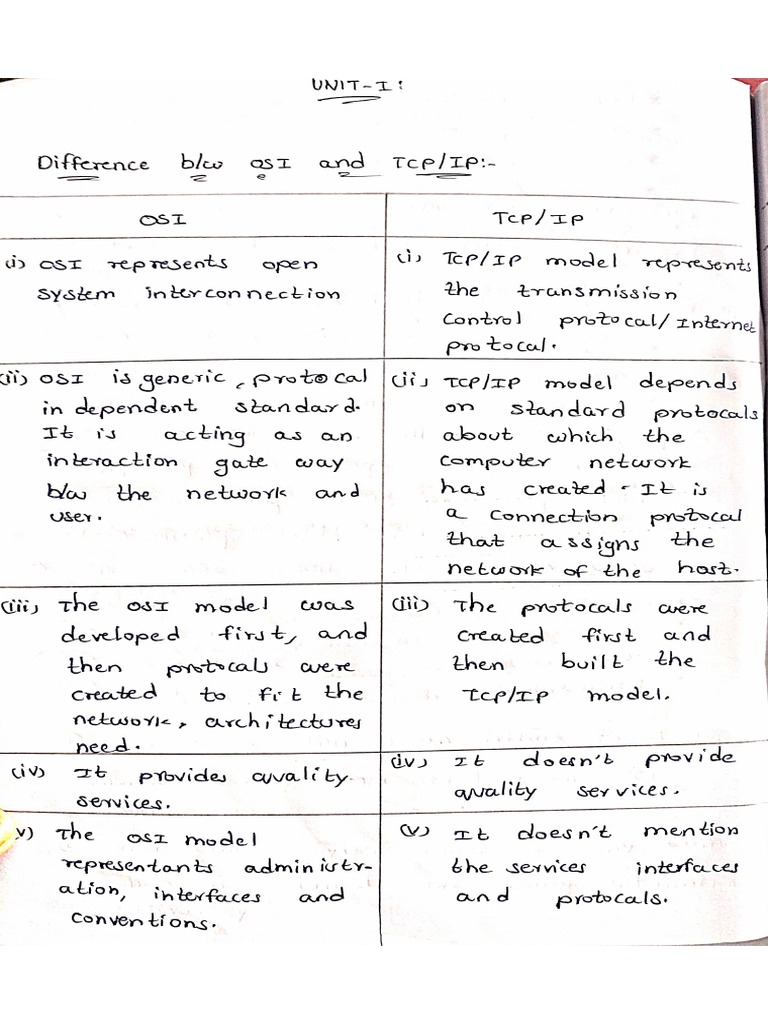 UNIT-I:
Difference b/w OSI and TCP/IP:-
OSI
TCP/IP
(i) OSI represents open
system interconnection
(i) TCP/IP model represents
the transmission
control protocal/Internet
protocal.
(ii) OSI is generic, protocal
in dependent standard.
It is acting as an
interaction gate way
b/w the network and
user.
(ii) TCP/IP model depends
on standard protocals
about which the
computer network
has created. It is
a connection protocal
that assigns the
network of the host.
(iii) The OSI model was
developed first, and
then protocals were
created to fit the
network, architectures
need.
(iii) The protocals were
created first and
then built the
TCP/IP model.
(iv) It provides quality
services.
(iv) It doesn't provide
quality services.
v) The OSI model
representants administr-
ation, interfaces and
conventions.
(v) It doesn't mention
the services interfaces
and protocals.